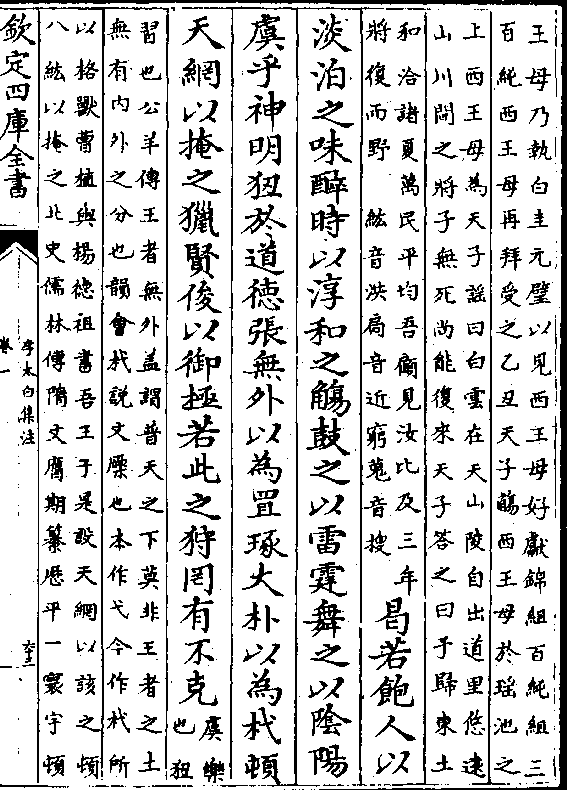 王母乃執白圭元璧以見西王母好獻錦組百純組三
百純西王母再拜受之乙丑天子觴西王母於瑶池之
上西王母為天子謡曰白雲在天山陵自出道里悠逺
山川間之將子無死尚能復來天子答之曰予歸東土
和洽諸夏萬民平均吾顧見汝比及三年
將復而野 紘音洪扃音近窮蒐音搜
曷若飽人以
淡泊之味醉時以淳和之觴鼓之以雷霆舞之以陰陽
虞乎神明狃於道德張無外以為罝琢大朴以為杙頓
天網以掩之獵賢俊以御極若此之狩罔有不克
虞樂
也狃
習也公羊傳王者無外盖謂普天之下莫非王者之土
無有内外之分也韻會杙說文橜也本作弋今作杙所
以格獸曹植與楊德祖書吾王于是設天網以該之頓
八紘以掩之北史儒林傳隋文膺期纂厯平一寰宇頓
欽定四庫全書
李太白集注
卷一
六三